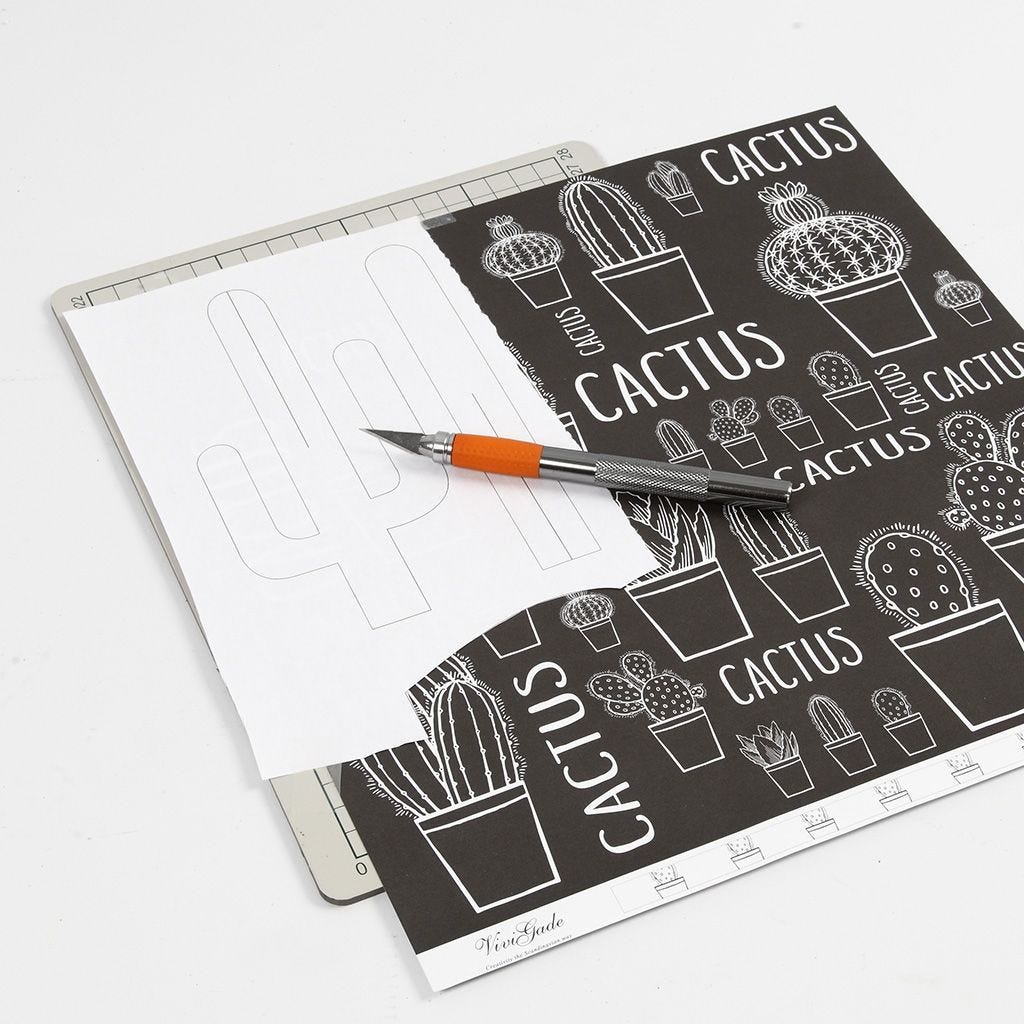 28
27
22
CACTUS
CACTUS
CACTUS
CACTUS
CACTUS
CACTUS
CACTUS
CACTUS
0
Vivi Gade
Creativity the Scandinavian way